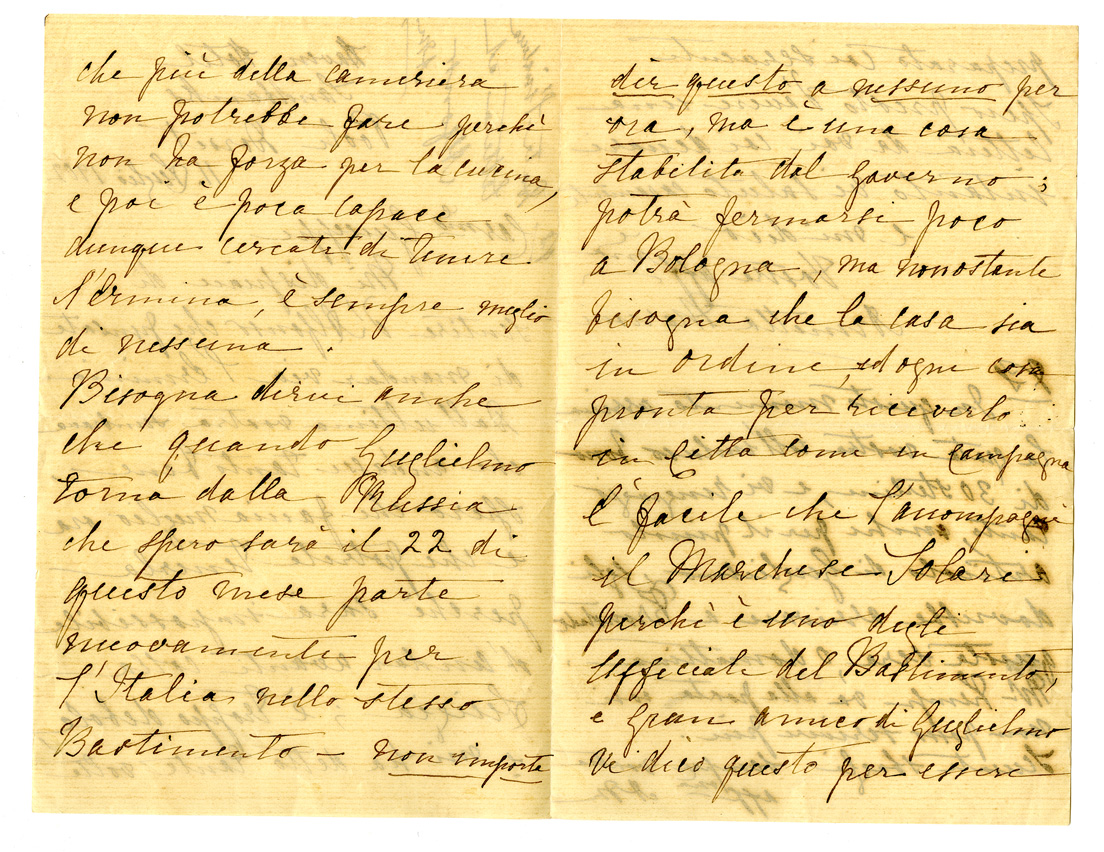 che più della cameriera
non potrebbe fare perchè
non ha forza per la cucina,
e poi è poca capace
dunque cercate di tenere
l'Erminia, è sempre meglio
di nessuna.
Bisogna dirvi anche
che quando Guglielmo
torna dalla Russia
che spero sarà il 22 di
questo mese parte
nuovamente per
l'Italia nello stesso
Bastimento – non importa
dir questo a nessuno per
ora, ma è una cosa
stabilita dal Governo;
potrà fermarsi poco
a Bologna, ma nonostante
bisogna che la casa sia
in ordine, ed ogni cosa
pronta per riceverlo
in Città come in Campagna
È facile che l'accompagni
il Marchese Solari
perchè è uno degli
Ufficiale del Bastimento,
e gran amico di Guglielmo
Vi dico questo per essere